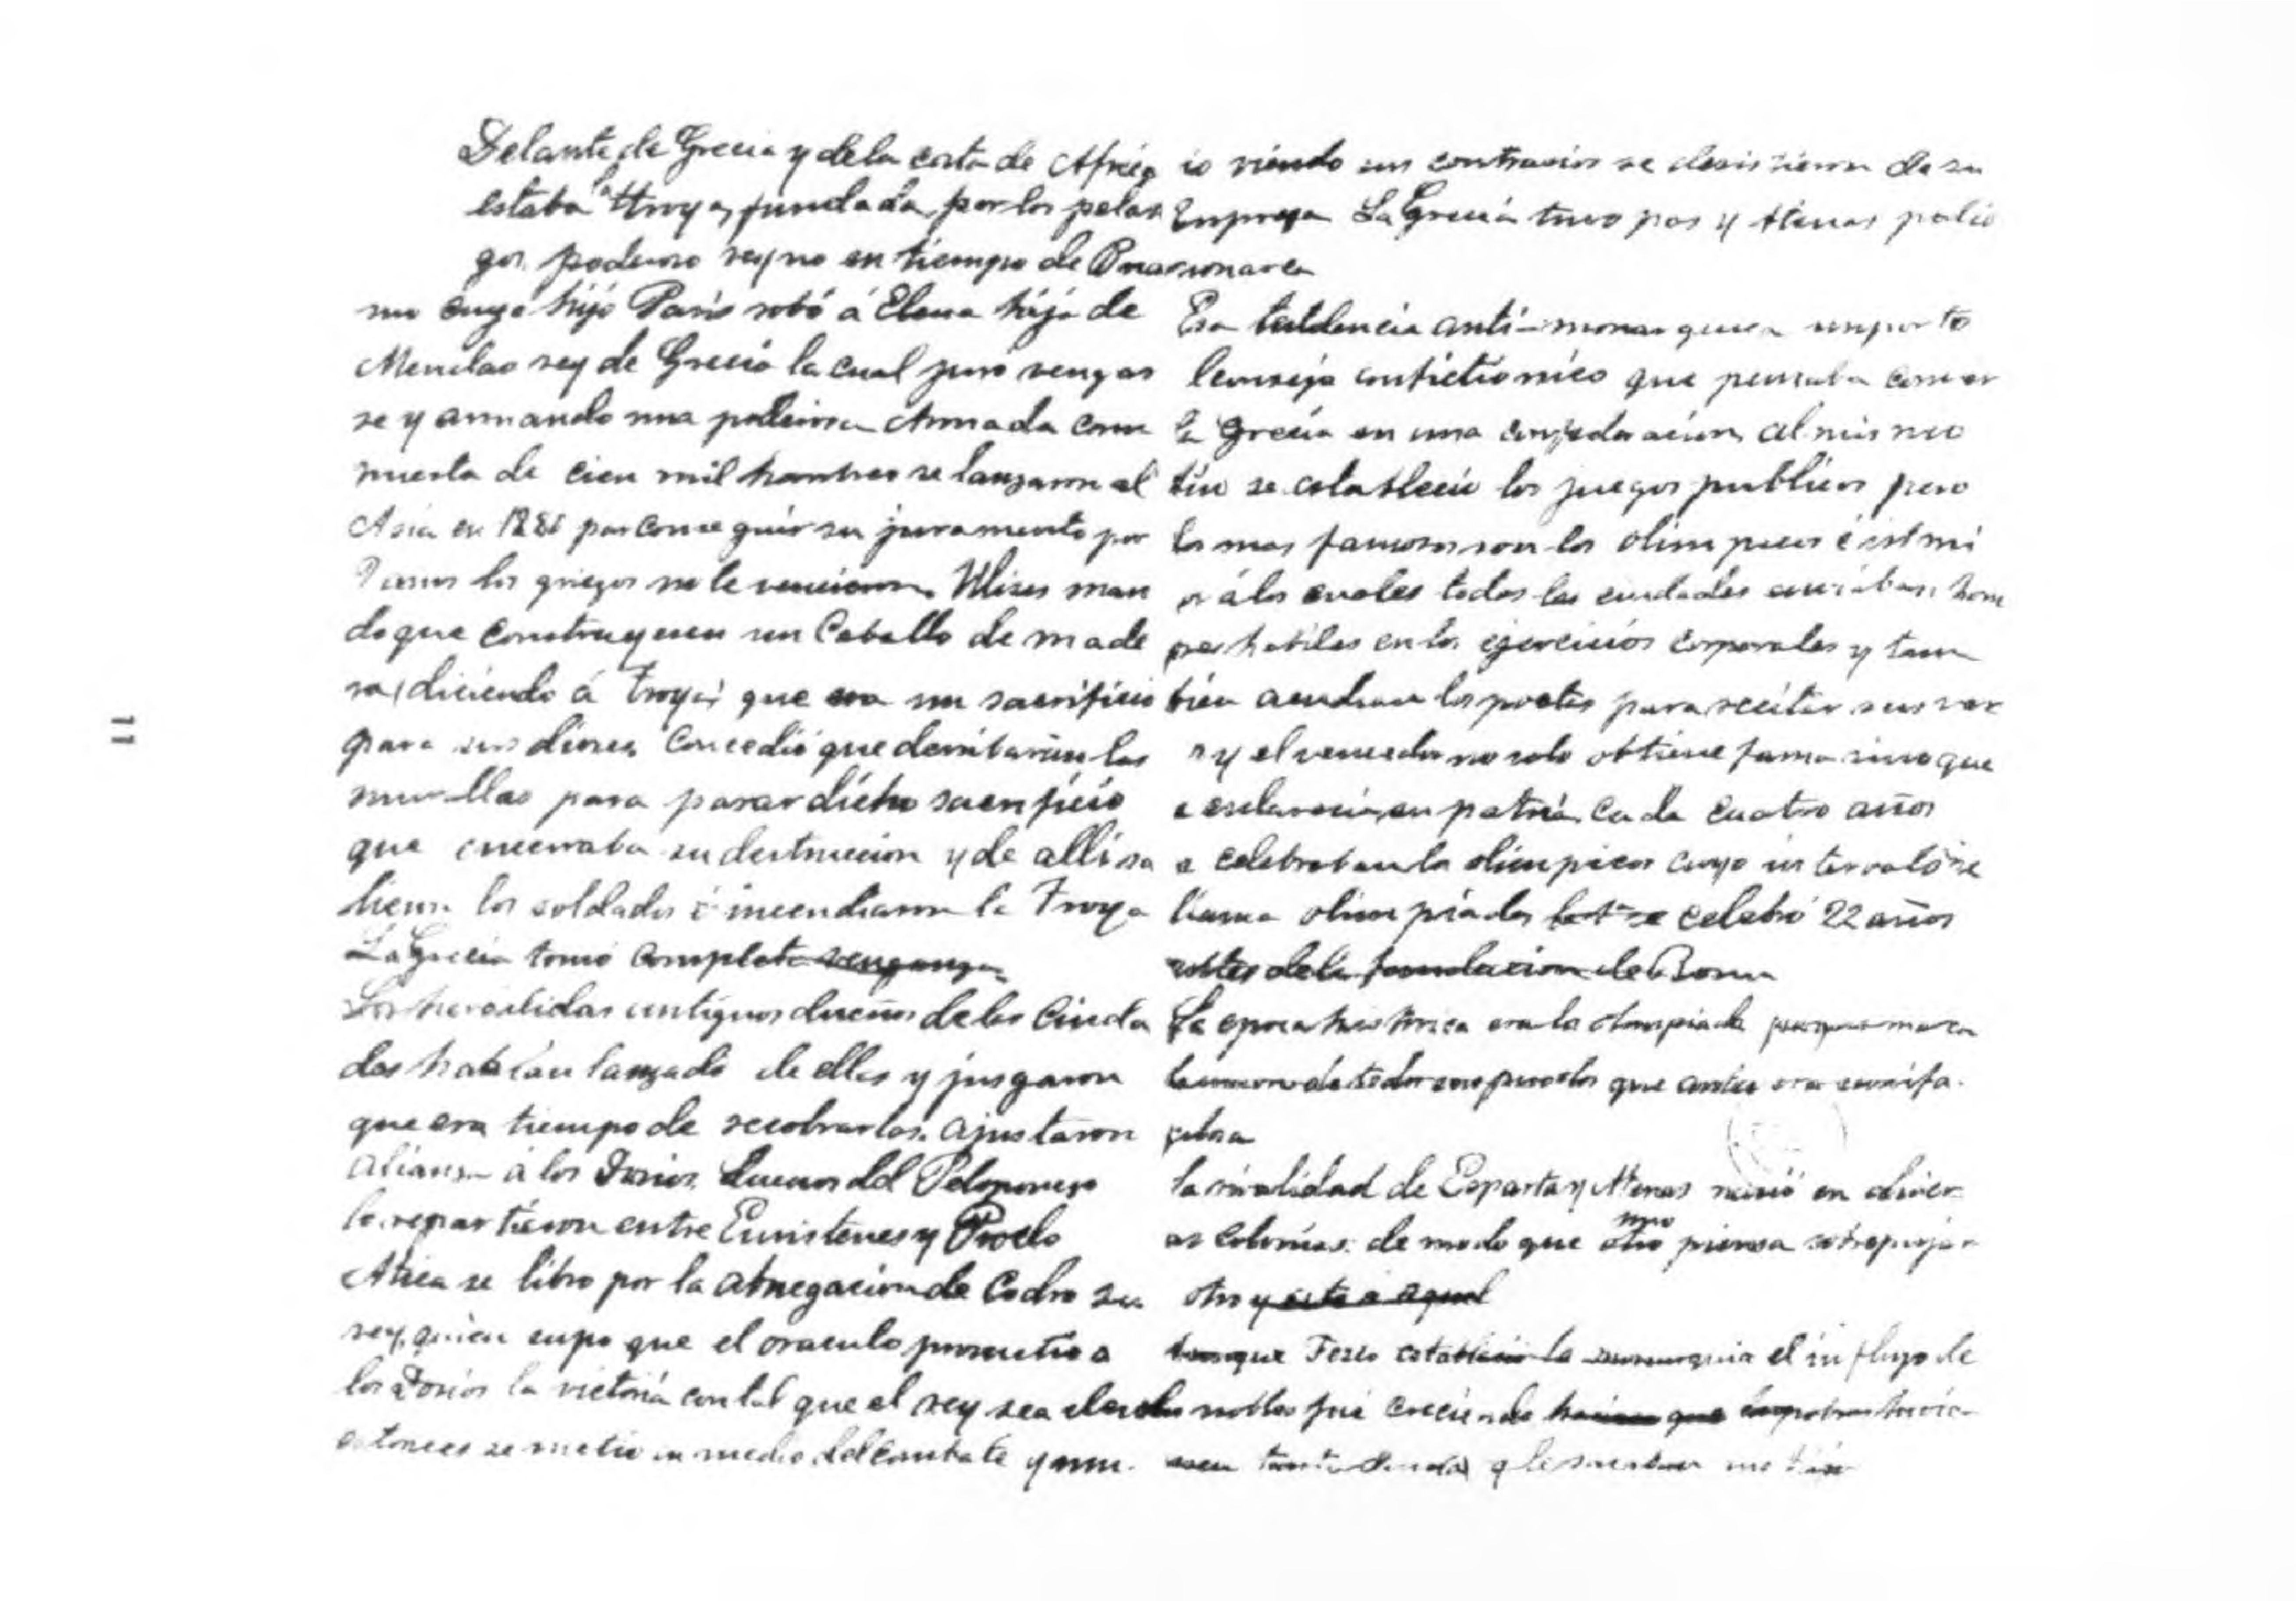 Delante de Grecia y de la costa de Africa
estaba la Troya, fundada por los pelas
gos, poderoso reyno en tiempo de
mo cuyo hijo Paris robó á Elena hija de
Menelao rey de Grecia la cual juró vengar
se y armando una poderosa Armada com
puesta de cien mil hombres se lanzaron al
Asia en por conseguir su juramento por
los griegos no le vencieron. Ulises man
do que construyesen un Caballo de made
ra, diciendo á Troya que era un sacrificio
para sus dioses. Concedió que derribarian las
murallas para pasar dicho sacrificio
que encerraba su destruccion y de alli sa
lieron los soldados é incendiaron la Troya
La Grecia tomó completa venganza
Los heraclidas antiguos dueños de las Ciuda
des habian lanzado de ellas y jusgaron
que era tiempo de recobrarlos. ajustaron
alianza á los Dorios. dueños del Peloponeso
lo repartieron entre Euristenes y Proclo
Atica se libro por la abnegacion de Codro su
rey, quien supo que el oraculo prometio a
los Dorios la victoria con tal que el rey sea
entonces se metio en medio del combate y mu
io viendo sus contrarios se desistieron de su
Empresa La Grecia tuvo pas y Atenas
Esa tendencia anti-monarquica
que pensaba
la Grecia en una confederacion, al mismo
se establecio los juegos publicos pero
los mas famosos son los olimpicos é istmi
os á los cuales todas las ciudades enviaban hom
res habiles en los ejercicios corporales y tam
bien acudian los poetas para recitar sus ver
s y el vencedor no solo obtiene fama sino que
e esclarecia su patria. Cada cuatro años
e celebraban los olimpicos cuyo intervalo se
llama olimpiadas se celebró 22 años
antes de la fundacion de Roma
La epoca historica era la olimpiada porque marca
la union de todos esos pueblos que antes era
La rivalidad de Esparta y Atenas nació en diver
as colonias: de modo que uno piensa sobrepujar
otro y este a aquel
Teseo establecio la monarquia el influjo de
los nobles fué creciendo